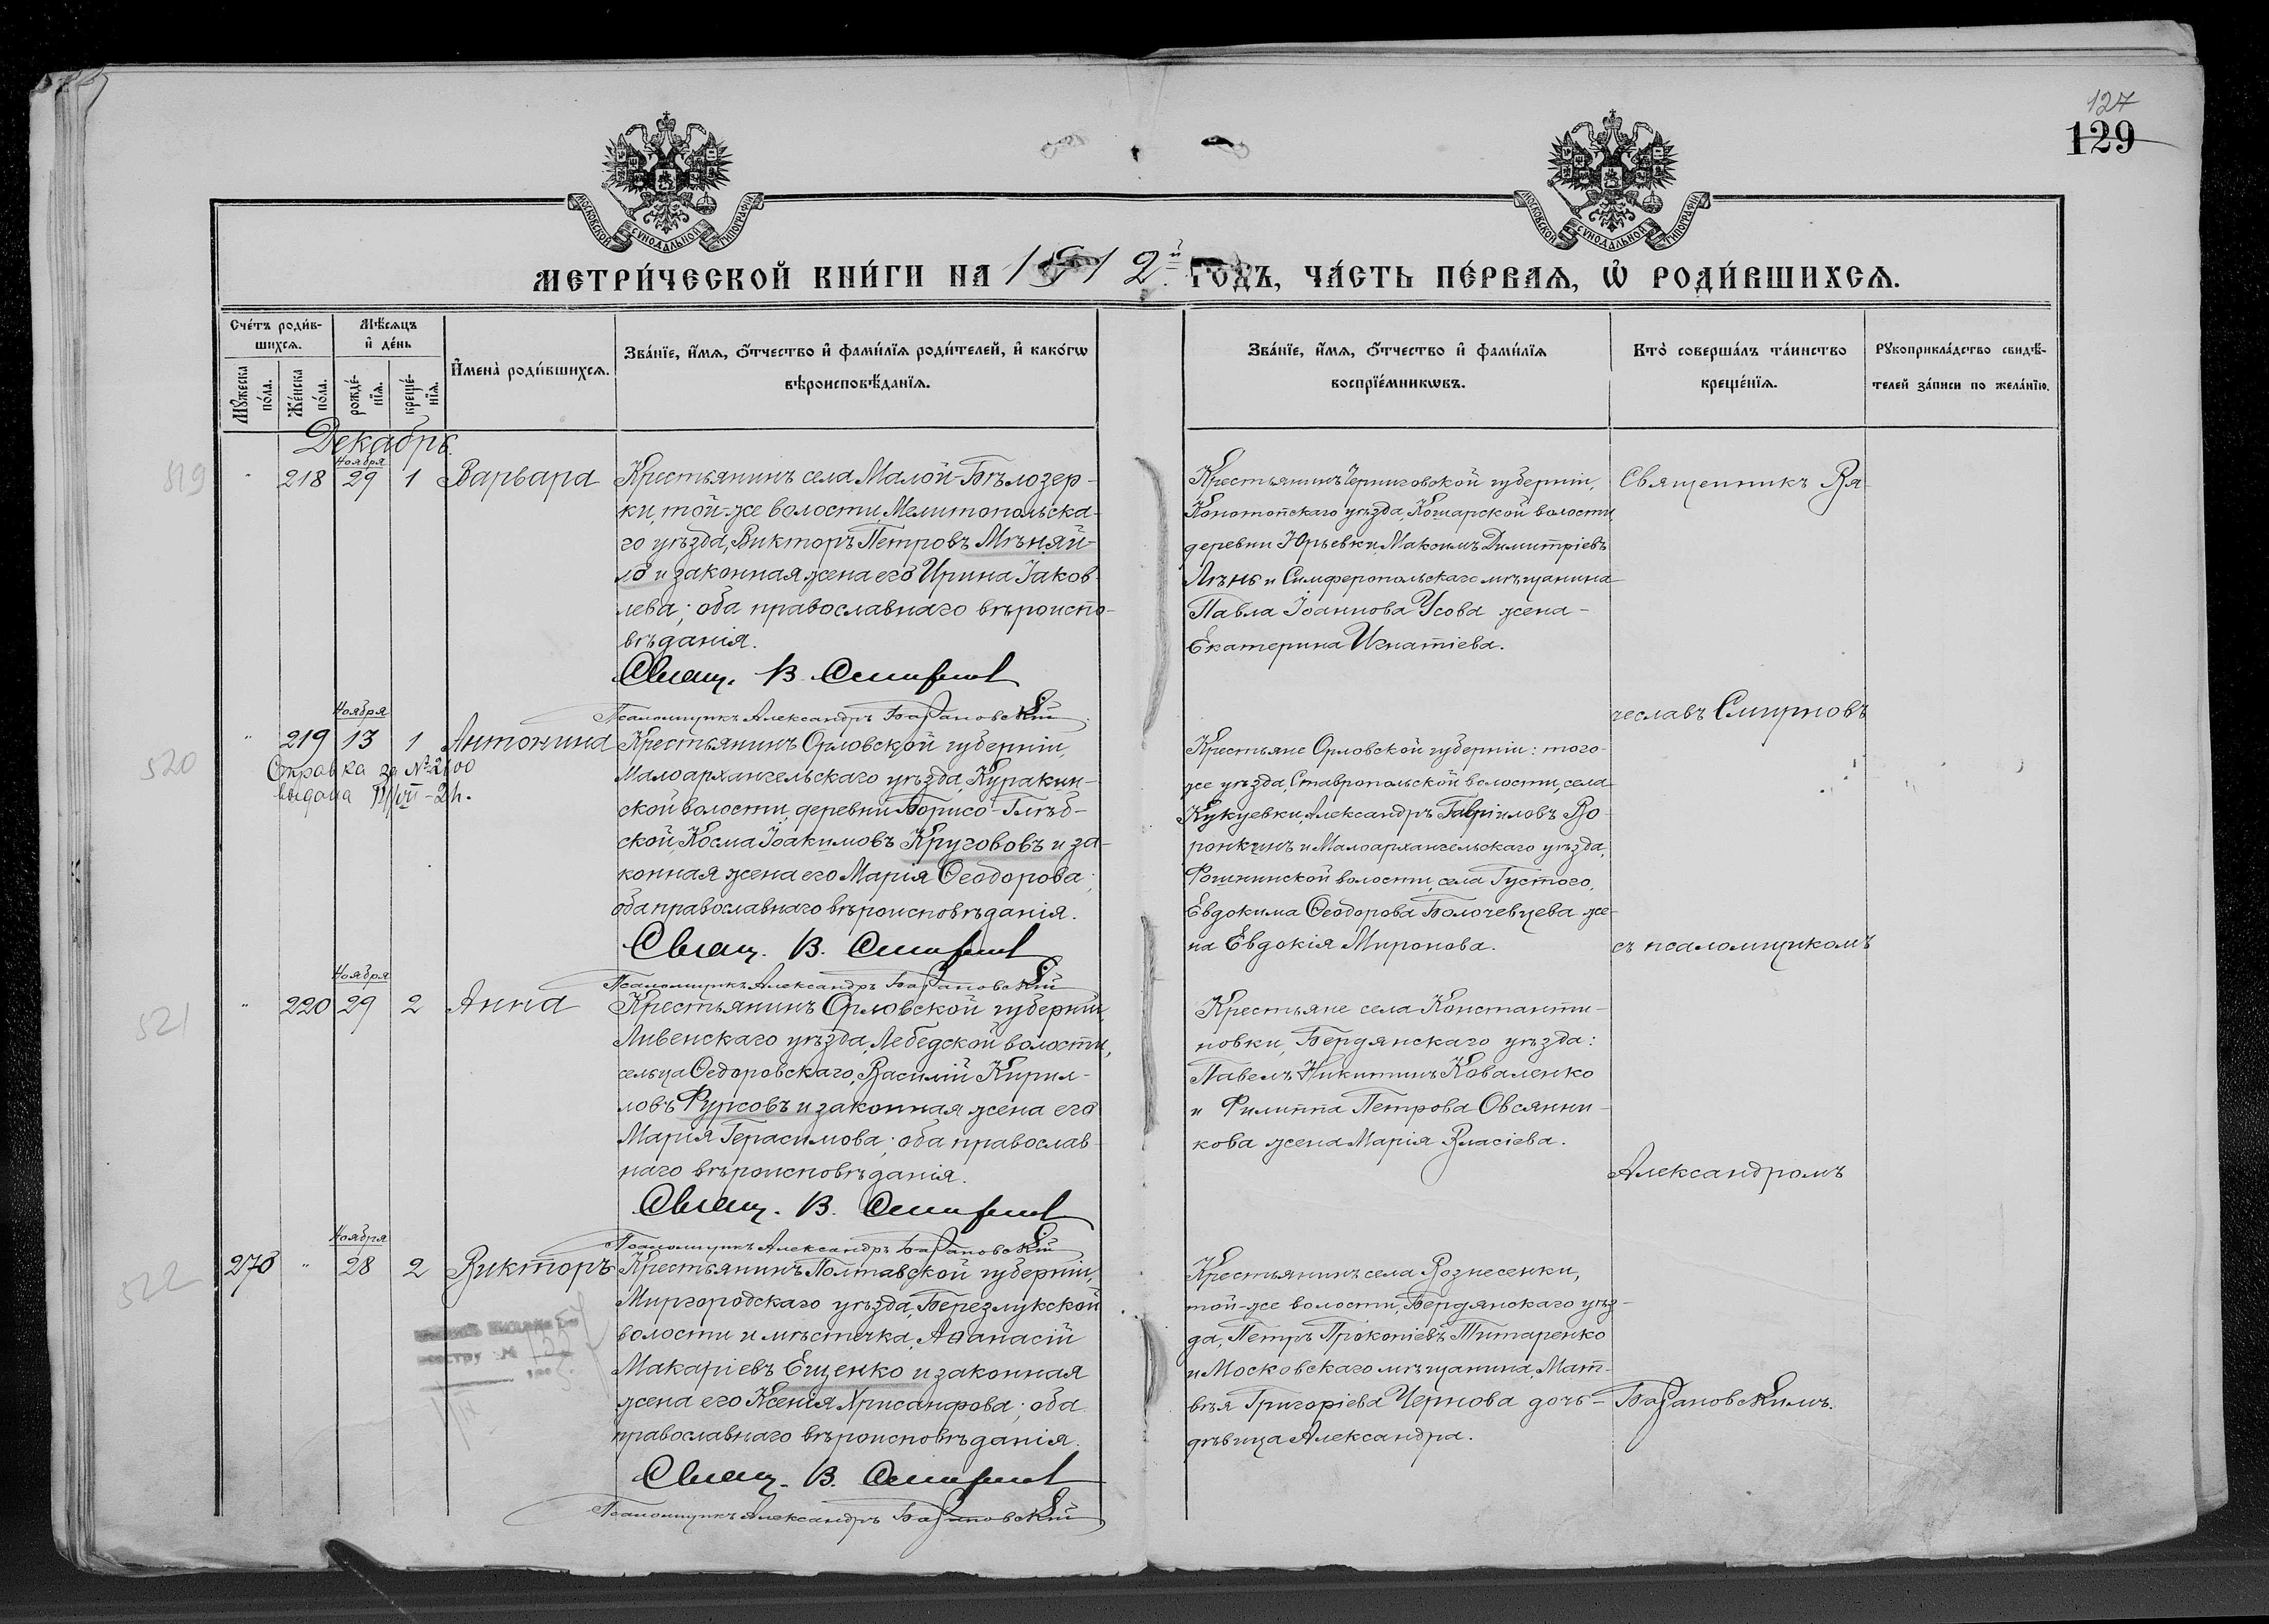 127
129
МОСКОВСКОЙ СѴНОДАЛЬНОЙ ТИПОГРАФІИ
МОСКОВСКОЙ СѴНОДАЛЬНОЙ ТИПОГРАФІИ
МЕТРИ́ЧЕСКОЙ КНИ́ГИ НА 1912й ГОДЪ, ЧА́СТЬ ПЕ́РВАЯ, Ѡ РОДИ́ВШИХСЯ.
Сче́тъ роди́вшихся.
Му́жеска по́ла.
Же́нска по́ла.
Мѣ́сяцъ и де́нь
рожде́нїя.
креще́нїя.
Имена̀ роди́вшихся.
Зва́нїе, и́мя, о́тчество и фами́лїя роди́телей, и како́гѡ
вѣроисповѣ́данїя.
Зва́нїе, и́мя, о́тчество и фами́лїя
воспрїе́мникѡвъ.
Кто̀ соверша́лъ та́инство
креще́нїя.
Рукоприкла́дство свидѣ́-
телей за́писи по жела́нїю.
Декабрь.
519
" 218 Ноября 29 1 Варвара
Крестьянинъ села Малой-Бѣлозер-
ки, той-же волости, Мелитопольска-
го уѣзда, Викторъ Петровъ Мѣняй-
ло и законная жена его Ирина Іаков-
лева; оба православнаго вѣроиспо-
вѣданія.
Свящ. В. Смирнов
Псаломщикъ Александръ Барановскій
Крестьянинъ Черниговской губерніи,
Конотопскаго уѣзда, Кошарской волости,
деревни Юрьевки, Максимъ Димитріевъ
Лѣнь и Симферопольскаго мѣщанина
Павла Іоаннова Усова жена-
Екатерина Игнатіева.
Священникъ Вя-
чеславъ Смирновъ
520
" 219 Ноября 13 1 Антонина
Справка за № 2100
выдана
Крестьянинъ Орловской губерніи,
Малоархангельскаго уѣзда, Куракин-
ской волости, деревни Борисо-Глѣб-
ской, Косма Іоакимовъ Кругововъ и за-
конная жена его Марія Ѳеодорова;
оба православнаго вѣроисповѣданія.
Свящ. В. Смирнов
Псаломщикъ Александръ Барановскій
Крестьяне Орловской губерніи: того-
же уѣзда, Ставропольской волости, села
Кукуевки, Александръ Гавріиловъ Во-
ронкинъ и Малоархангельскаго уѣзда,
волости, села Густого,
Евдокима Ѳеодорова Болочевцева же-
на Евдокія Миронова.
съ псаломщикомъ
521
" 220 Ноября 29 2 Анна
Крестьянинъ Орловской губерніи,
Ливенскаго уѣзда, Лебедской волости,
сельца Ѳедоровскаго, Василій Кирил-
ловъ Фурсовъ и законная жена его
Марія Герасимова; оба православ-
наго вѣроисповѣданія.
Свящ. В. Смирнов
Псаломщикъ Александръ Барановскій
Крестьяне села Константи-
новки, Бердянскаго уѣзда:
Павелъ Никитинъ Коваленко
и Филиппа Петрова Овсянни-
кова жена Марія Власіева.
Александромъ
522
270 " Ноября 28 2 Викторъ
Крестьянинъ Полтавской губерніи,
Миргородскаго уѣзда, Березлукской
волости и мѣстечка, Аѳанасій
Макаріевъ Ещенко и законная
жена его Ксенія Хрисанфова; оба
православнаго вѣроисповѣданія.
Свящ. В. Смирнов
Псаломщикъ Александръ Барановскій
Крестьянинъ села Вознесенки,
той-же волости, Бердянскаго уѣз-
да, Петръ Прокопіевъ Титаренко
и Московскаго мѣщанина Мат-
вѣя Григоріева Чернова дочь-
дѣвица Александра.
Барановскимъ.